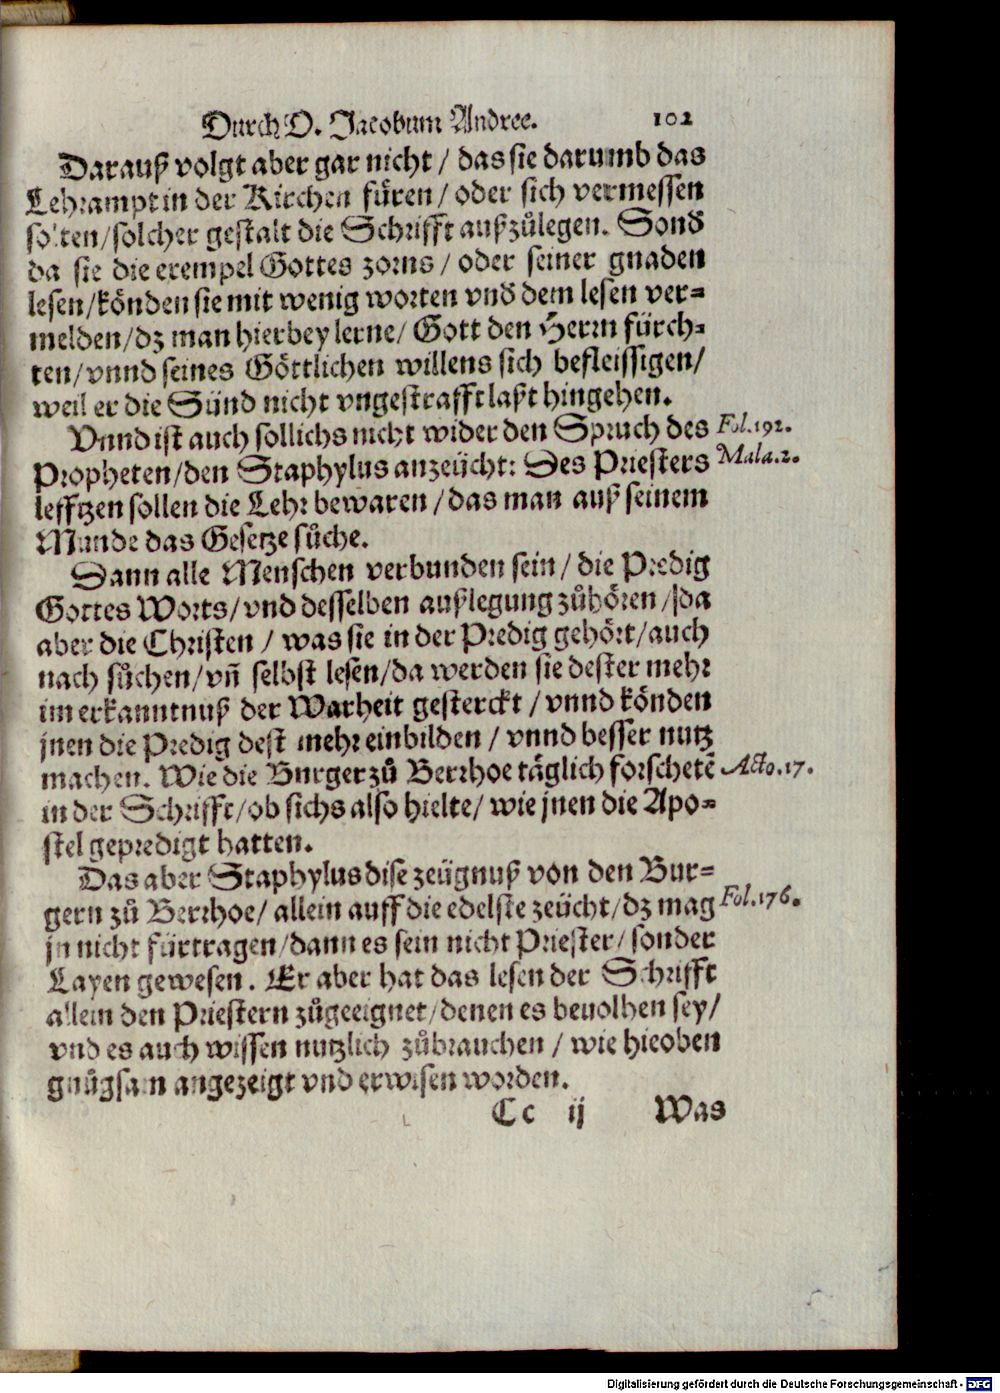 Durch D. Jacobum Andree. 102
Darauß volgt aber gar nicht / das sie darumb das
Lehrampt in der Kirchen füren / oder sich vermessen
solten / solcher gestalt die Schrifft außzůlegen. Sond
da sie die exempel Gottes zorns / oder seiner gnaden
lesen / könden sie mit wenig worten vnd dem lesen ver=
melden / dz man hierbey lerne / Gott den Herrn fürch=
ten / vnnd seines Göttlichen willens sich befleissigen /
weil er die Sünd nicht vngestrafft laßt hingehen.
Vnnd ist auch sollichs nicht wider den Spruch des Fol. 192.
Propheten / den Staphylus anzeücht: Des Priesters Mala. 2.
lefftzen sollen die Lehr bewaren / das man auß seinem
Munde das Gesetze sůche.
Dann alle Menschen verbunden sein / die Predig
Gottes Worts / vnd desselben außlegung zůhören / da
aber die Christen / was sie in der Predig gehört / auch
nach sůchen / vñ selbst lesen / da werden sie dester mehr
im erkanntnuß der Warheit gesterckt / vnnd könden
jnen die Predig dest mehr einbilden / vnnd besser nutz
machen. Wie die Burger zů Berrhoe täglich forschetē Acto. 17.
in der Schrifft / ob sichs also hielte / wie jnen die Apo=
stel gepredigt hatten.
Das aber Staphylus dise zeügnuß von den Bur=
gern zů Berrhoe / allein auff die edelste zeücht / dz mag Fol. 176.
jn nicht fürtragen / dann es sein nicht Priester / sonder
Layen gewesen. Er aber hat das lesen der Schrifft
allein den Priestern zůgeeignet / denen es beuolhen sey /
vnd es auch wissen nutzlich zůbrauchen / wie hieoben
gnůgsam angezeigt vnd erwisen worden.
Cc ij Was
Digitalisierung gefördert durch die Deutsche Forschungsgemeinschaft - DFG